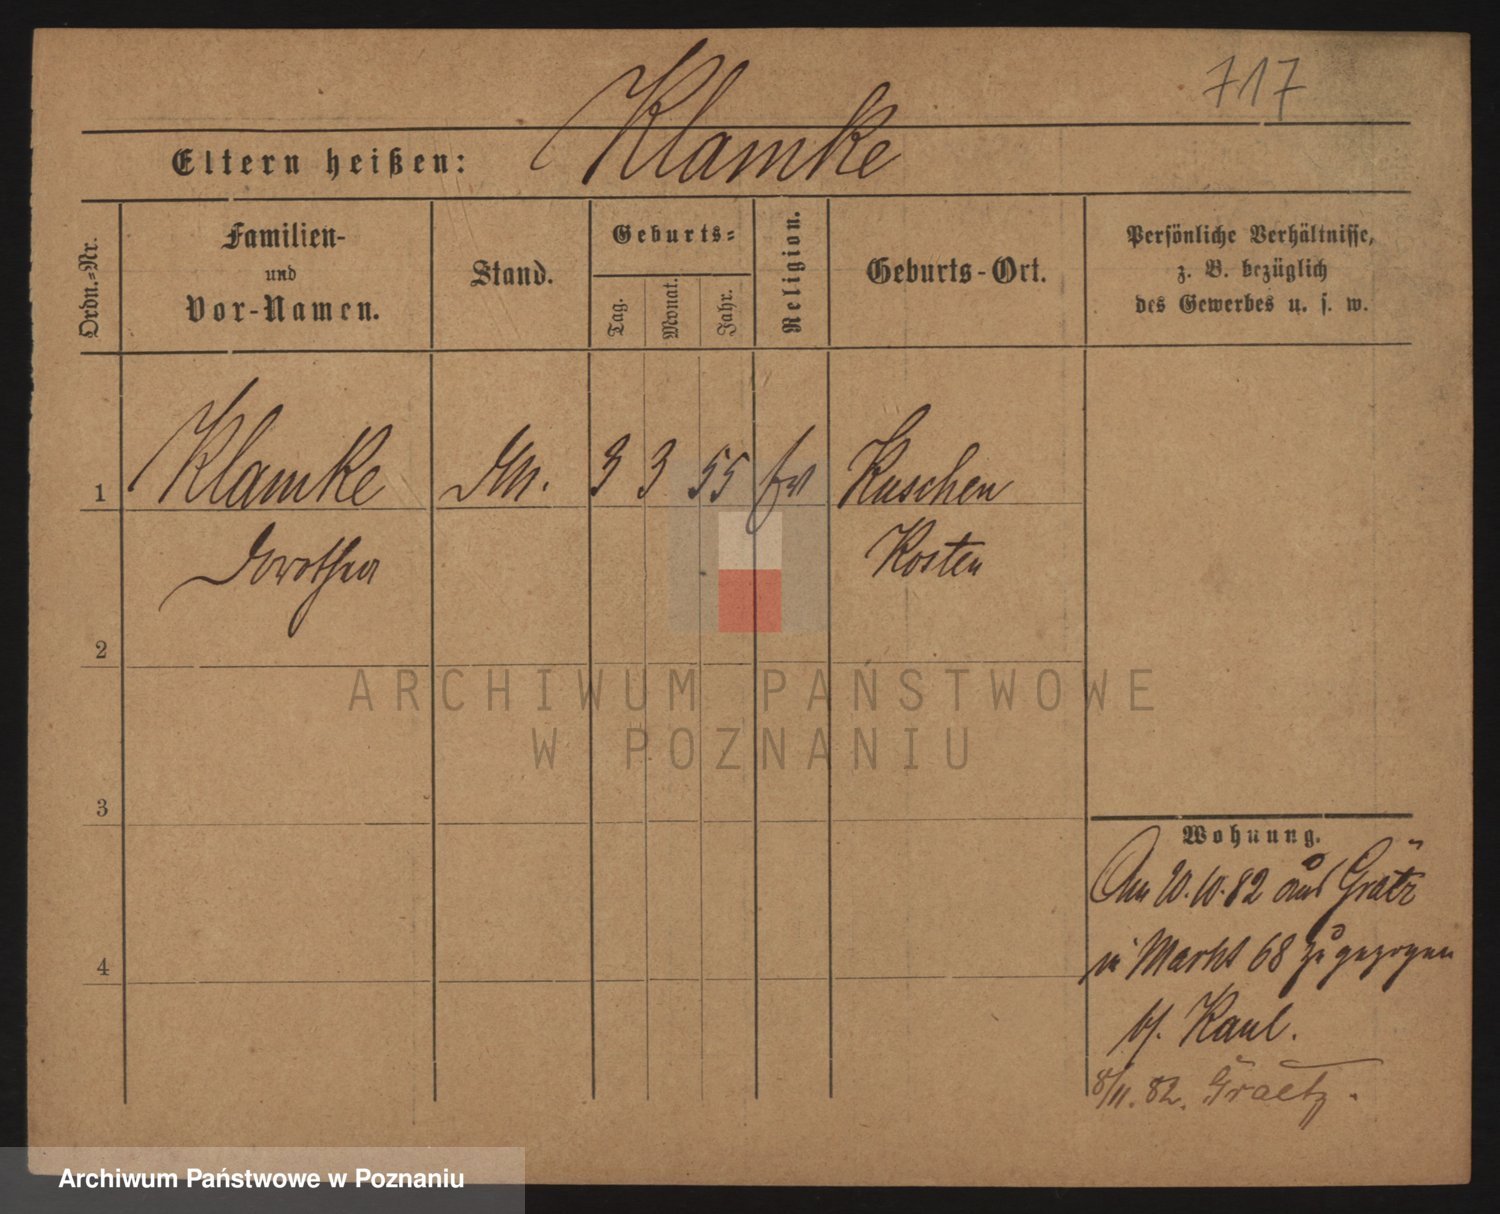 717
Klamke
Eltern heißen:
Ordn.-Nr.
Familien-
und
Vor-Namen.
Stand.
Geburts-
Tag.
Monat.
Jahr.
Religion.
Geburts-Ort.
Persönliche Verhältnisse,
z. B. bezüglich
des Gewerbes u. s. w.
1
Klamke
3 3 55 ev
Kuschen
Dorothea
Kosten
2
ARCHIWUM PAŃSTWOWE
W POZNANIU
3
Wohnung.
Am 20.10.82 aus Grätz
4
in Markt 68 zugezogen
bei Kaul.
8/11. 82. Graetz.
Archiwum Państwowe w Poznaniu